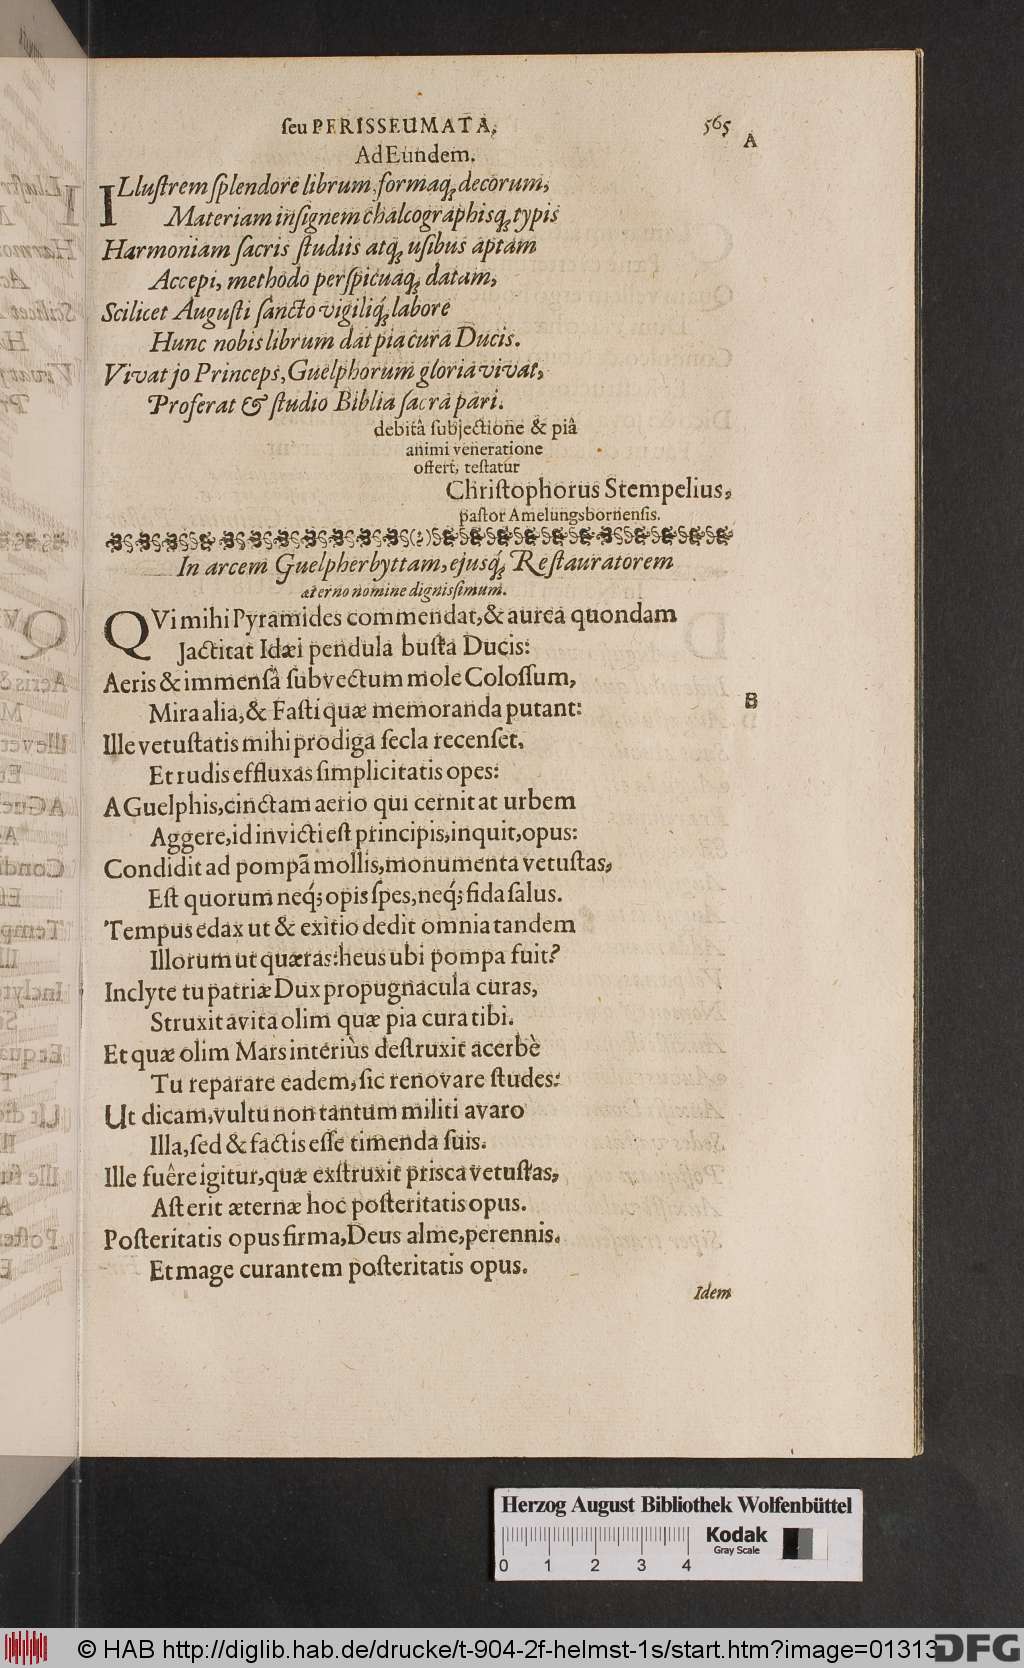 ſeu PERISSEUMATA. 565
A
Ad Eundem.
ILluſtrem ſplendore librum, formaq; decorum,
Materiam inſignem chalcographisq; typis
Harmoniam ſacris ſtudiis atq; uſibus aptam
Accepi, methodo perſpicuaq; datam,
Scilicet Auguſti ſancto vigiliq́; labore
Hunc nobis librum dat pia cura Ducis.
Vivat jo Princeps, Guelphorum gloria vivat,
Proferat & ſtudio Biblia ſacra pari.
debitâ ſubjectione & piâ
animi veneratione
offert, teſtatur
Chriſtophorus Stempelius,
paſtor Amelungsbornenſis.
In arcem Guelpherbyttam, ejusq́; Reſtauratorem
æterno nomine digniſsimum.
QVi mihi Pyramides commendat, & aurea quondam
Jactitat Idæi pendula buſta Ducis:
Aeris & immenſâ ſubvectum mole Coloſſum,
Mira alia, & Faſti quæ memoranda putant:
B
Ille vetuſtatis mihi prodiga ſecla recenſet,
Et rudis effluxas ſimplicitatis opes:
A Guelphis, cinctam aerio qui cernit at urbem
Aggere, id invicti eſt principis, inquit, opus:
Condidit ad pompã mollis, monumenta vetuſtas,
Eſt quorum neq́; opis ſpes, neq́; fida ſalus.
Tempus edax ut & exitio dedit omnia tandem
Illorum ut quæras: heus ubi pompa fuit?
Inclyte tu patriæ Dux propugnacula curas,
Struxit avita olim quæ pia cura tibi.
Et quæ olim Mars interiùs deſtruxit acerbè
Tu reparare eadem, ſic renovare ſtudes:
Ut dicam, vultu non tantum militi avaro
Illa, ſed & factis eſſe timenda ſuis.
Ille fuêre igitur, quæ exſtruxit priſca vetuſtas,
Aſt erit æternæ hoc poſteritatis opus.
Poſteritatis opus firma, Deus alme, perennis.
Et mage curantem poſteritatis opus.
Idem
Herzog August Bibliothek Wolfenbüttel
0 1 2 3 4
Kodak
Gray Scale
© HAB http://diglib.hab.de/drucke/t-904-2f-helmst-1s/start.htm?image=01313
DFG